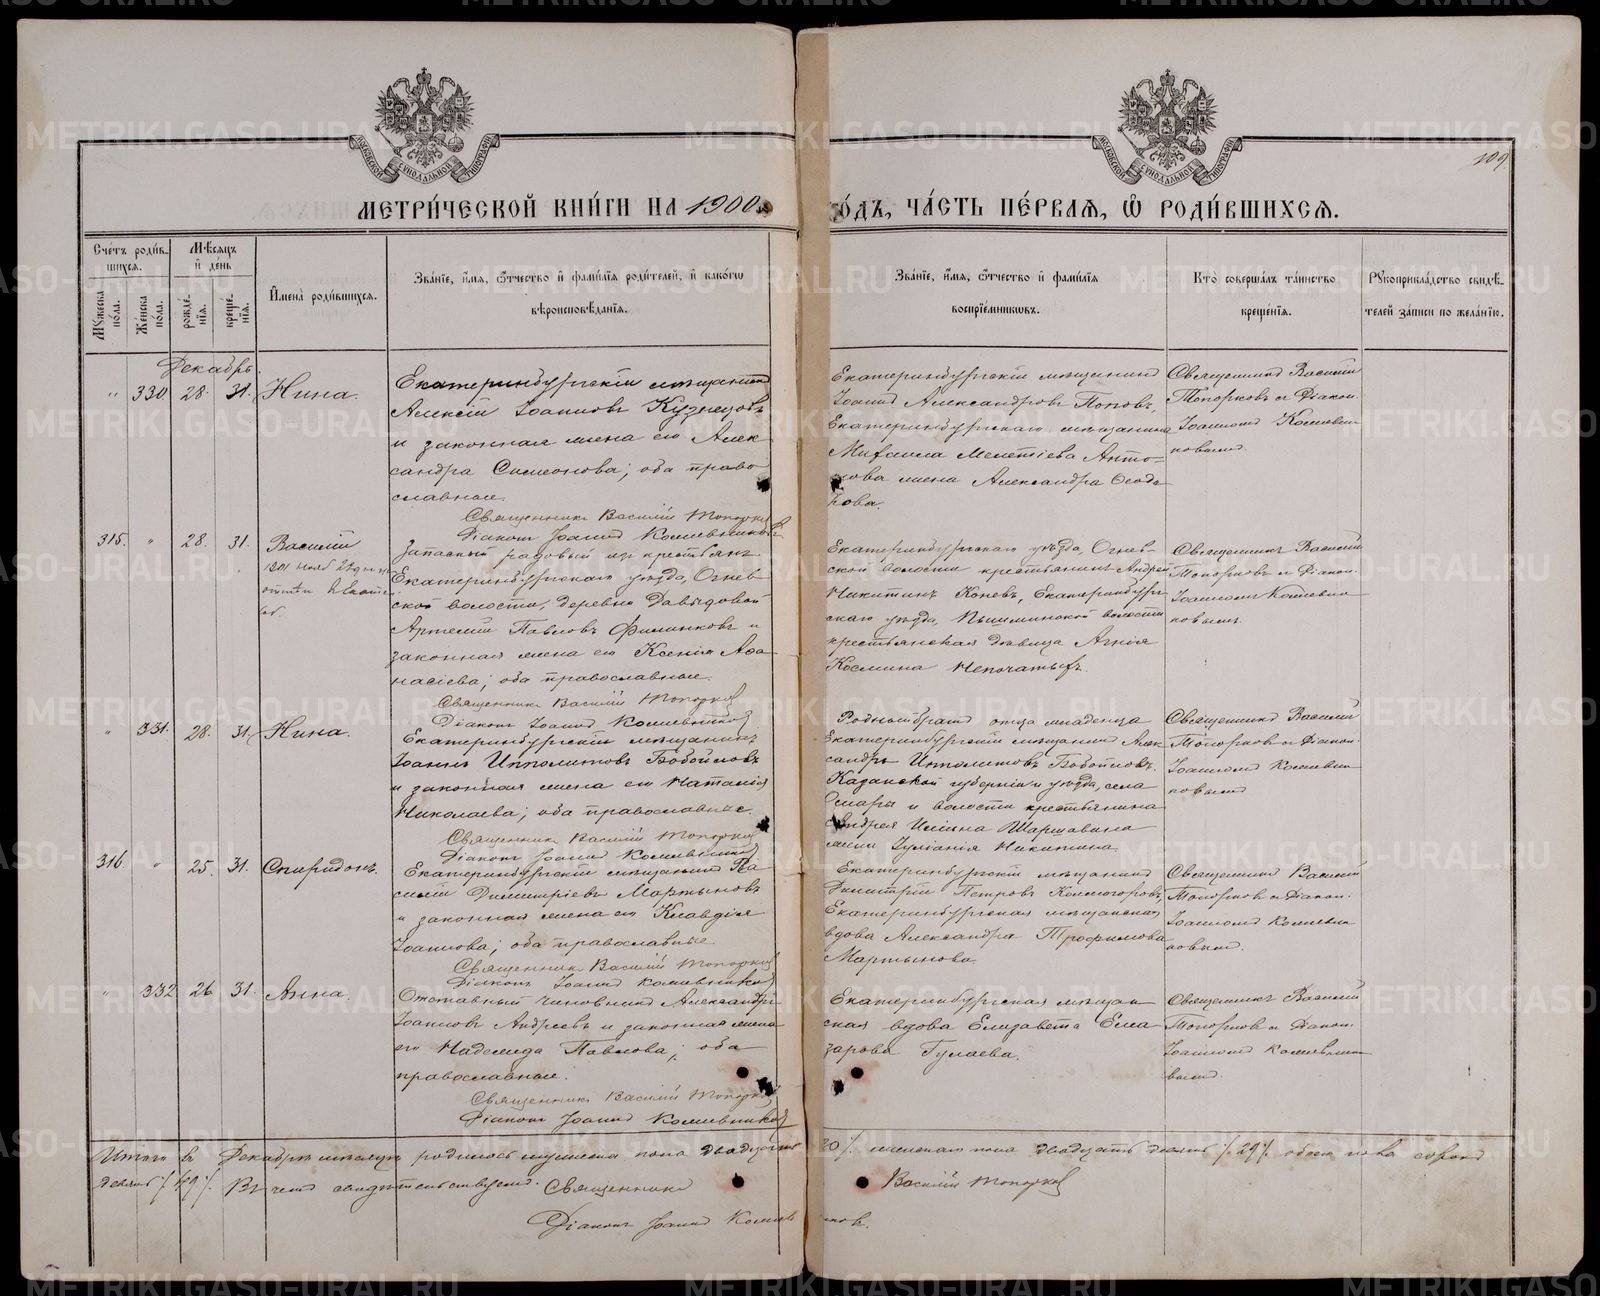 109.
МЕТРИ́ЧЕСКОЙ КНИ́ГИ НА 1900й
ГО́ДЪ, ЧА́СТЬ ПЕ́РВАЯ, Ѡ РОДИ́ВШИХСЯ.
Сче́тъ роди́вшихся.
Мѣ́сяцъ и де́нь
Му́жеска по́ла.
Же́нска по́ла.
рожде́нїя.
креще́нїя.
И҆мена̀ роди́вшихся.
Зва́нїе, и҆́мя, ѻ҆́тчество и҆ фами́лїя роди́телей, и҆ како́гѡ
вѣроисповѣ́данїя.
Зва́нїе, и҆́мя, ѻ҆́тчество и҆ фами́лїя
воспрїе́мниковъ.
Кто̀ соверша́лъ та́инство
креще́нїя.
Рукоприкла́дство свидѣ́-
телей за́писи по жела́нїю.
Декабрь.
" 330. 28. 31. Нина.
Екатеринбургскій мѣщанинъ
Алексій Іоанновъ Кузнецовъ
и законная жена его Алек
сандра Симеонова; оба право
славные.
Священникъ Василій Топорковъ
Діаконъ Іоаннъ Кожевниковъ
Екатеринбургскій мѣщанинъ
Іоаннъ Александровъ Поповъ,
Екатеринбургскаго мѣщанина
Михаила Мелетіева Анто-
нова жена Александра Ѳеодо
рова.
Священникъ Василій
Топорковъ и Діакон.
Іоанномъ Кожевни
ковымъ.
315. " 28. 31. Василій
Запасный рядовый изъ крестьянъ
Екатеринбургскаго уѣзда, Огнев
ской волости, деревни Давыдовой
Артемій Павловъ Филинковъ и
законная жена его Ксенія Аѳа
насіева; оба православные.
Священникъ Василій Топорковъ
Діаконъ Іоаннъ Кожевниковъ
Екатеринбургскаго уѣзда, Огнев-
ской волости крестьянинъ Андрей
Никитинъ Коневъ, Екатеринбург
скаго уѣзда, Пышминской волости
крестьянская дѣвица Агнія
Космина Непочатыхъ.
Священникъ Василій
Топорковъ и Діакон.
Іоанномъ Кожевни
ковымъ.
" 331. 28. 31. Нина.
Екатеринбургскій мѣщанинъ
Іоаннъ Ипполитовъ Бобойловъ
и законная жена его Наталія
Николаева; оба православные.
Священникъ Василій Топорковъ
Діаконъ Іоаннъ Кожевниковъ
Родный братъ отца младенца
Екатеринбургскій мѣщанинъ Алек
сандръ Ипполитовъ Бобойловъ.
Казанской губерніи и уѣзда, села
и волости крестьянина
Андрея Ильина Шаршавина
жена Іуліанія Никитина.
Священникъ Василій
Топорковъ и Діакон.
Іоанномъ Кожевни
ковымъ
316. " 25. 31. Спиридонъ.
Екатеринбургскій мѣщанинъ Ва
силій Димитріевъ Мартыновъ
и законная жена его Клавдія
Іоаннова; оба православные.
Священникъ Василій Топорковъ
Діаконъ Іоаннъ Кожевниковъ
Екатеринбургскій мѣщанинъ
Димитрій Петровъ Колмогоровъ,
Екатеринбургская мѣщанская
вдова Александра Трофимова
Мартынова.
Священникъ Василій
Топорковъ и Діакон.
Іоанномъ Кожевни
ковым.
" 332 26 31. Анна.
Отставный чиновникъ Александръ
Іоанновъ Андреевъ и законная жена
его Надежда Павлова; оба
православные.
Священникъ Василій Топорковъ
Діаконъ Іоаннъ Кожевниковъ
Екатеринбургская мѣщан
ская вдова Елизавета Елеа
зарова Гулаева.
Священникъ Василій
Топорковъ и Діакон.
Іоаннъ Кожевнико
вымъ.
Итого въ Декабрѣ мѣсяцѣ родилось мужеска пола двадцать 20/. женскаго пола двадцать девять /.29/. обоего пола сорокъ
девять /.49/. Въ чемъ свидѣтельствуемъ. Священникъ Василій Топорковъ
Діаконъ Іоаннъ Кожевниковъ.
METRIKI.GASO-URAL.RU